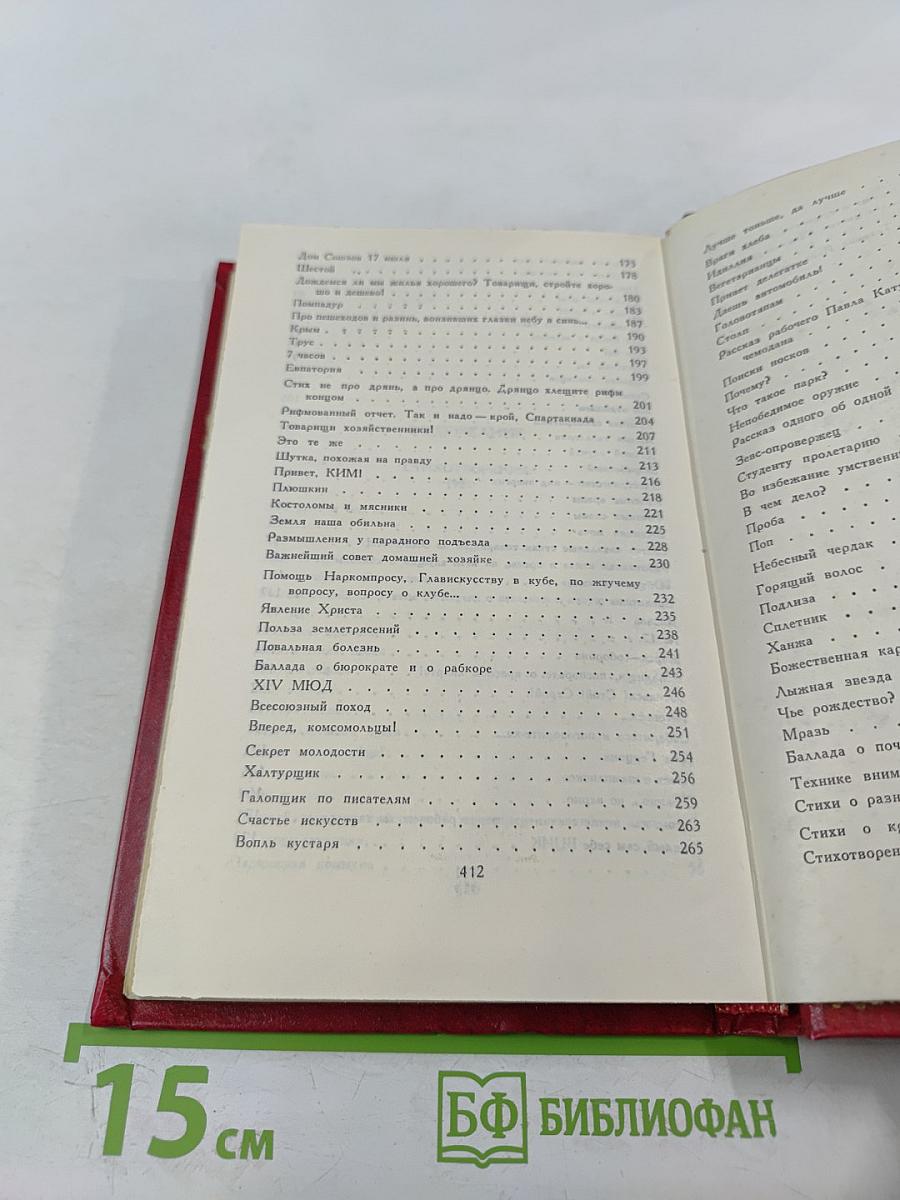 Дом Союзов 17 июля . . . . . . . . . . . . . . . . 175
Шестой . . . . . . . . . . . . . . . . . . . 178
Дождемся ли мы жилья хорошего? Товарищи, стройте хоро-
шо и дешево! . . . . . . . . . . . . . . . . 180
Помпадур . . . . . . . . . . . . . . . . . . 183
Про пешеходов и разинь, вонзивших глазки небу в синь... . . . 187
Крым . . . . . . . . . . . . . . . . . . . . 190
Трус . . . . . . . . . . . . . . . . . . . . 193
7 часов . . . . . . . . . . . . . . . . . . . 197
Евпатория . . . . . . . . . . . . . . . . . . 199
Стих не про дрянь, а про дрянцо. Дрянцо хлещите рифм
концом . . . . . . . . . . . . . . . . . . 201
Рифмованный отчет. Так и надо — крой, Спартакиада . . 204
Товарищи хозяйственники! . . . . . . . . . . . . 207
Это те же . . . . . . . . . . . . . . . . . . 211
Шутка, похожая на правду . . . . . . . . . . . . 213
Привет, КИМ! . . . . . . . . . . . . . . . . 216
Плюшкин . . . . . . . . . . . . . . . . . . 218
Костоломы и мясники . . . . . . . . . . . . . . 221
Земля наша обильна . . . . . . . . . . . . . . 225
Размышления у парадного подъезда . . . . . . . . . 228
Важнейший совет домашней хозяйке . . . . . . . . . 230
Помощь Наркомпросу, Главискусству в кубе, по жгучему
вопросу, вопросу о клубе... . . . . . . . . . . . 232
Явление Христа . . . . . . . . . . . . . . . . 235
Польза землетрясений . . . . . . . . . . . . . . 238
Повальная болезнь . . . . . . . . . . . . . . . 241
Баллада о бюрократе и о рабкоре . . . . . . . . . 243
XIV МЮД . . . . . . . . . . . . . . . . . 246
Всесоюзный поход . . . . . . . . . . . . . . . 248
Вперед, комсомольцы! . . . . . . . . . . . . . . 251
Секрет молодости . . . . . . . . . . . . . . . 254
Халтурщик . . . . . . . . . . . . . . . . . 256
Галопщик по писателям . . . . . . . . . . . . . 259
Счастье искусств . . . . . . . . . . . . . . . 263
Вопль кустаря . . . . . . . . . . . . . . . . 265
412
Лучше тоньше, да лучше . .
Враги хлеба . . . . . .
Идиллия . . . . . . .
Вегетарианцы . . . . .
Привет делегатке . . . .
Даешь автомобиль! . . .
Головотяпам . . . . . .
Столп . . . . . . . .
Рассказ рабочего Павла Кат
чемодана . . . . .
Поиски носков . . . . .
Почему? . . . . . . .
Что такое парк? . . . .
Непобедимое оружие . . .
Рассказ одного об одной
Зевс-опровержец . . . .
Студенту пролетарию . .
Во избежание умственн
В чем дело? . . . . .
Проба . . . . . . .
Поп . . . . . . . .
Небесный чердак . . .
Горящий волос . . . .
Подлиза . . . . . .
Сплетник . . . . . .
Ханжа . . . . . . .
Божественная кар
Лыжная звезда . . .
Чье рождество?
Мразь . . . . . .
Баллада о поч
Технике вним
Стихи о разн
Стихи о к
Стихотворен
15 см
БФ БИБЛИОФАН